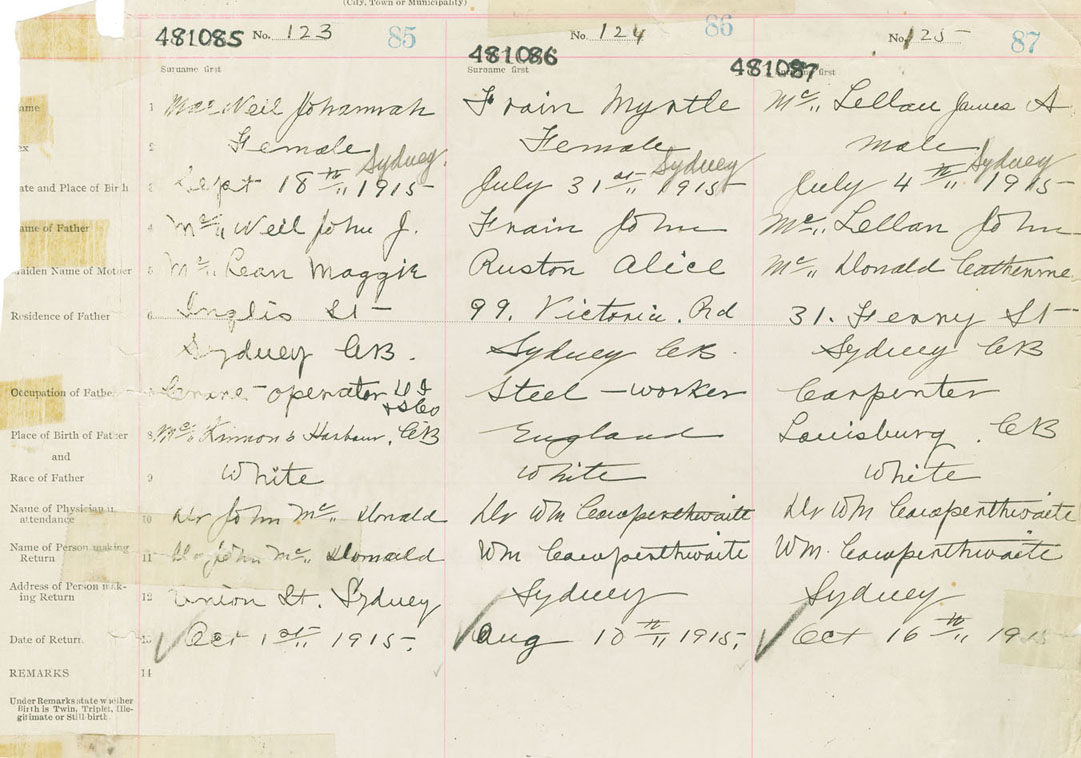 (City, Town or Municipality)
481085 No. 123 85
481086 No. 124 86
481087 No. 125 87
Surname first Surname first first
ame 1 Mac Neil Johannah Frain Myrtle Mc Lellan James A
ex 2 Female Female Male
ate and Place of Birth 3 Sept 18th 1915 Sydney July 31st 1915 Sydney July 4th 1915 Sydney
ame of Father 4 Mc Neil John J. Frain John Mc Lellan John
aiden Name of Mother 5 Mc Lean Maggie Ruston Alice Mc Donald Catherine
Residence of Father 6 Inglis St 99. Victoria. Rd 31. Ferry St
Sydney CB. Sydney CB. Sydney CB
Occupation of Fathe Crane-operator D I & S Co Steel-worker Carpenter
Place of Birth of Father 8 Mc Kinnon's Harbour, CB England Louisburg. CB
and
Race of Father 9 White White White
Name of Physician in attendance 10 Dr John Mc Donald Dr Wm Cowperthwaite Dr Wm Cowperthwaite
Name of Person making Return 11 Dr John Mc Donald Wm Cowperthwaite Wm. Cowperthwaite
Address of Person making Return 12 Union St. Sydney Sydney Sydney
Date of Return 13 Oct 1st 1915. Aug 10th 1915. Oct 16th 1915
REMARKS 14
Under Remarks state whether
Birth is Twin, Triplet, Ille-
gitimate or Still birth.